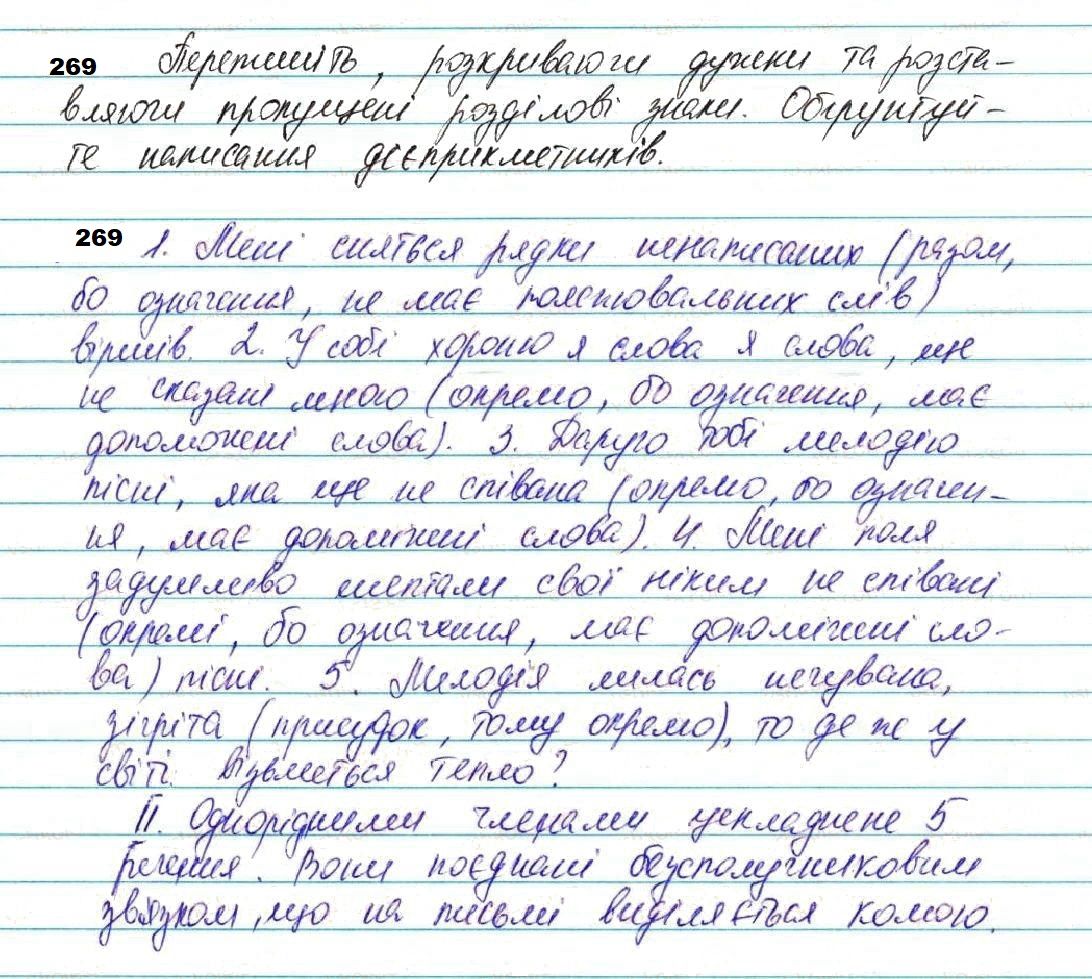 269 Перепишіть, розкриваючи дужки та розста-
вляючи пропущені розділові знаки. Обґрунтуй-
те написання дієприкметників.
269 1. Мені сняться рядки ненаписаних (разом,
бо означення, не має пояснювальних слів)
віршів. 2. У собі хороню я слова я слова, ще
не сказані мною (окремо, бо означення, має
допоможені слова). 3. Дарую тобі мелодію
пісні, яка ще не співана (окремо, бо означен-
ня, має допоміжні слова). 4. Мені поля
задумливо шептали свої ніким не співані
(окремі, бо означення, має допоміжні сло-
ва) пісні. 5. Мелодія лилась нечувана,
зігріта (присудок, тому окремо), то де ж у
світі візьметься тепло?
II. Однорідними членами ускладнене 5
речення. Вони поєднані безсполучниковим
зв'язком, що на письмі виділяється комою.